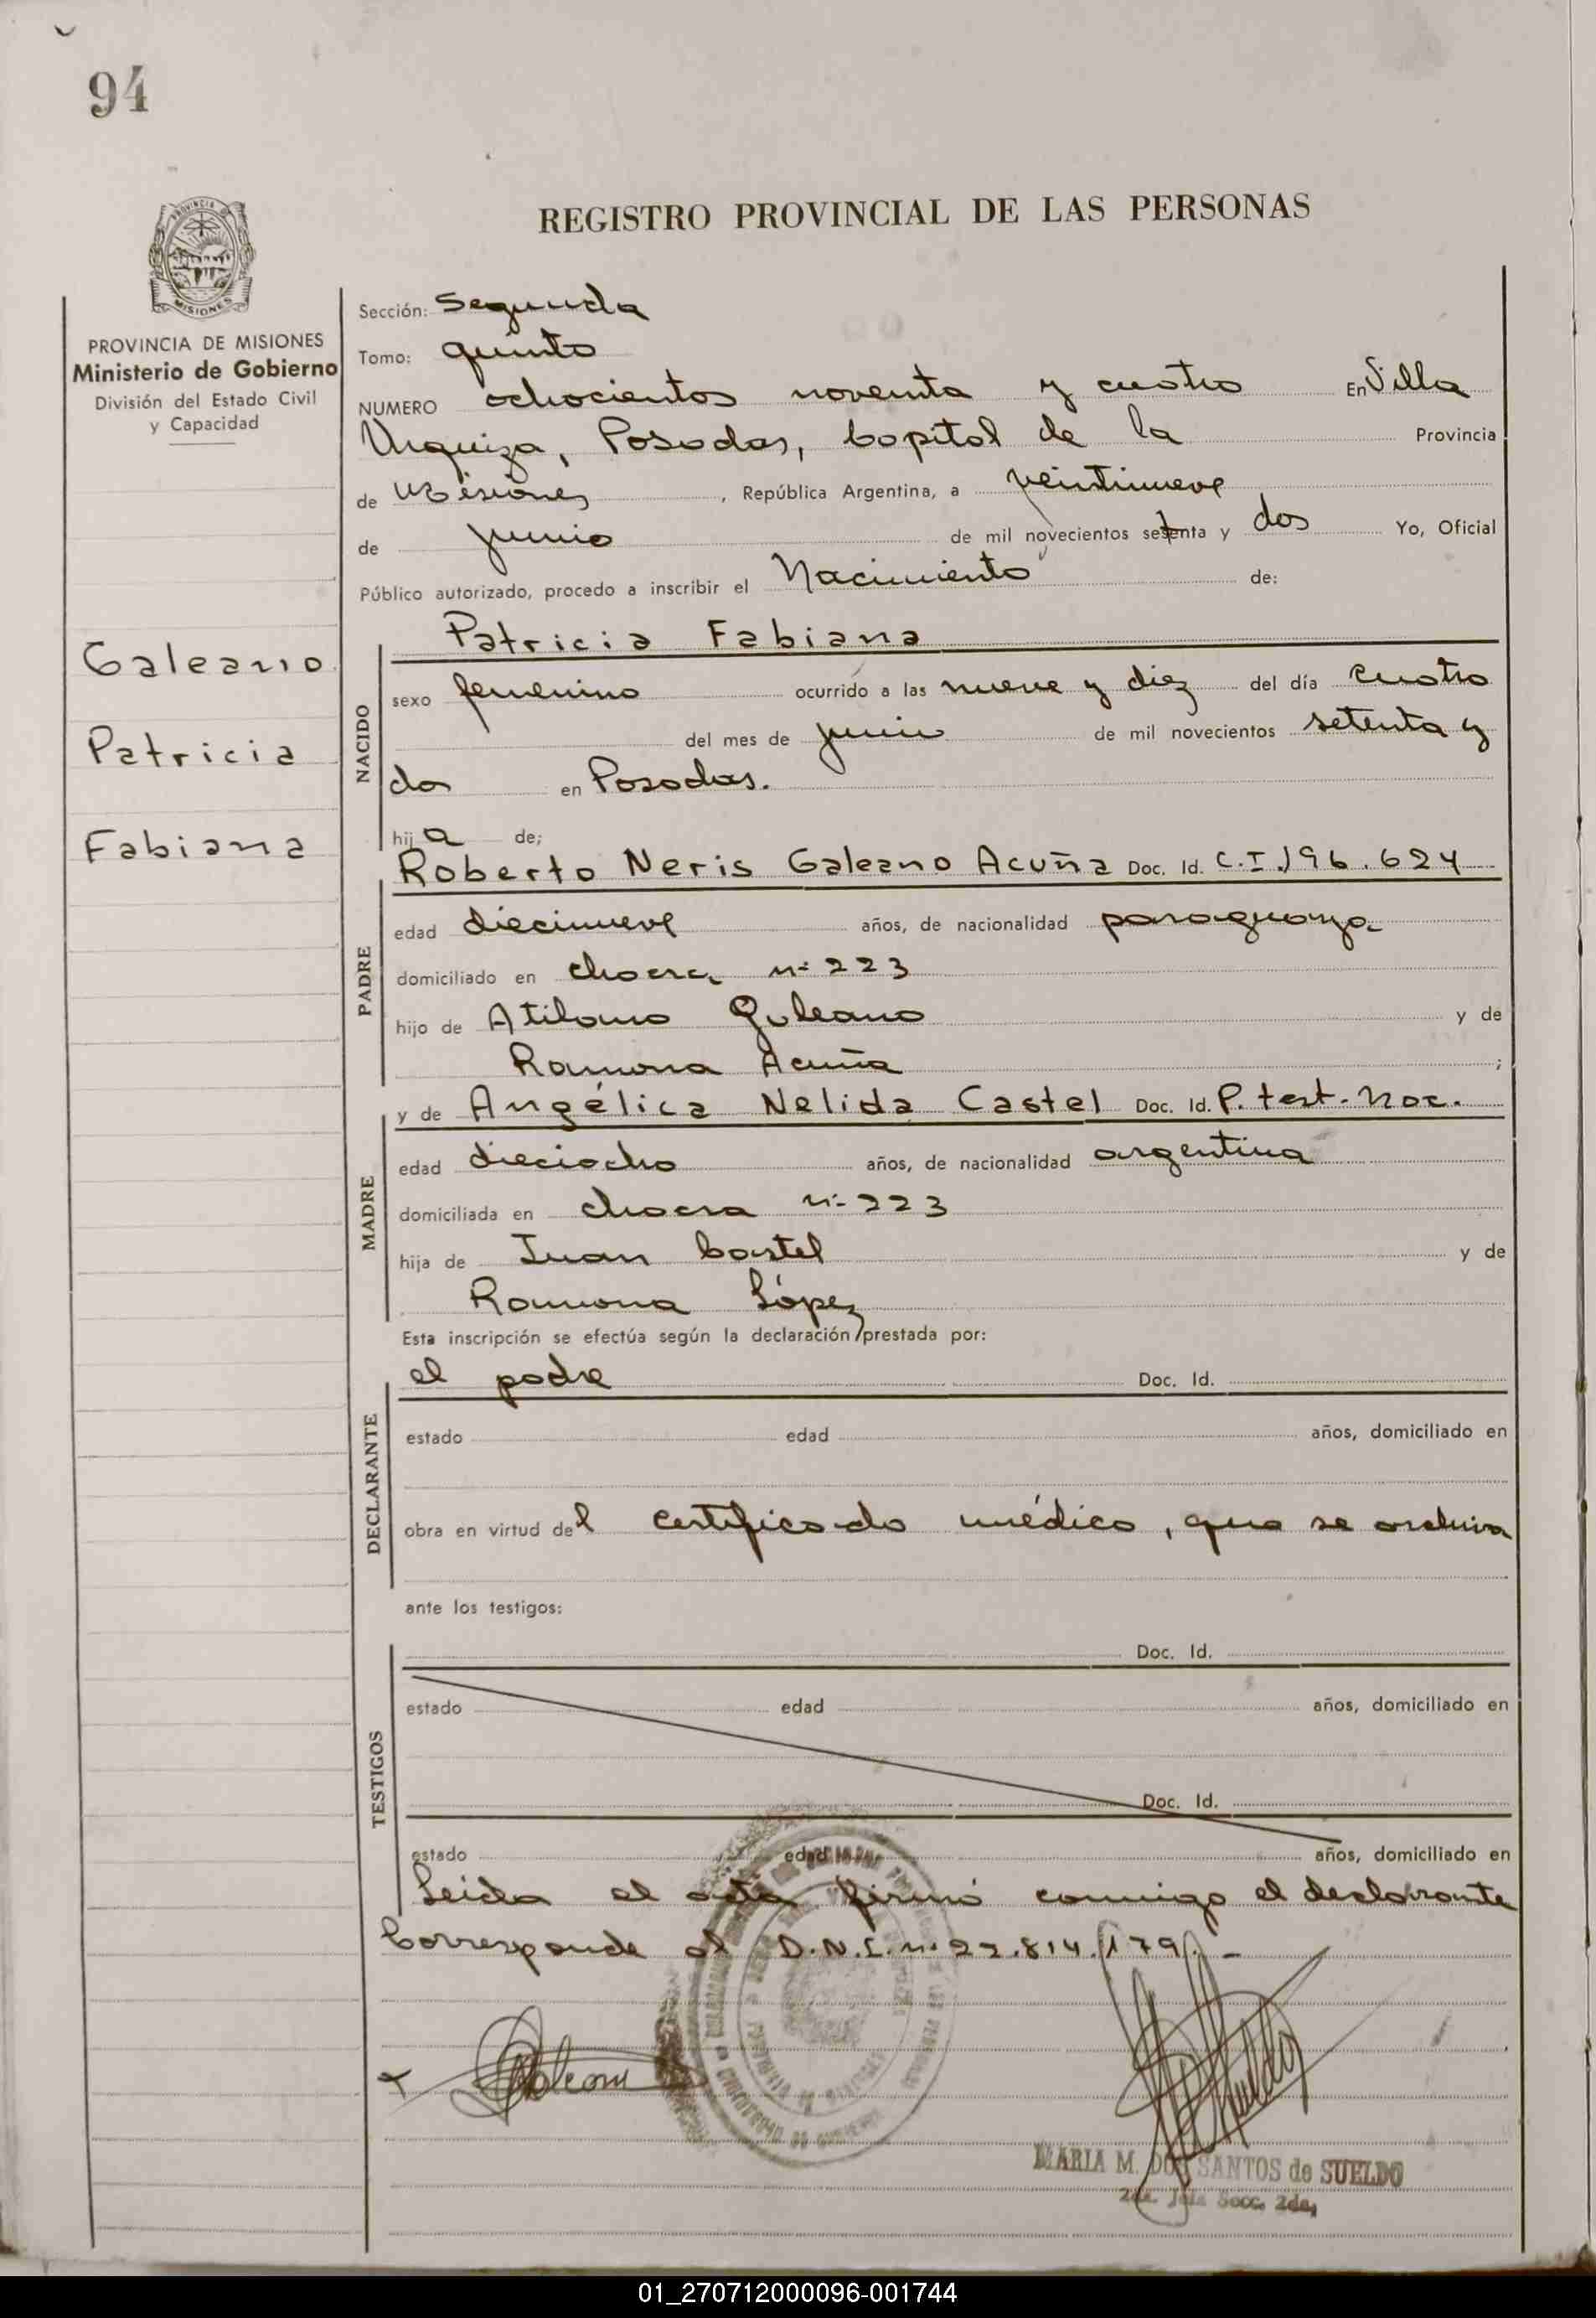 94
REGISTRO PROVINCIAL DE LAS PERSONAS
PROVINCIA DE MISIONES
MISIONES
PROVINCIA DE MISIONES
Ministerio de Gobierno
División del Estado Civil
y Capacidad
Galeano
Patricia
Fabiana
Sección: Segunda
Tomo: quinto
NUMERO ochocientos noventa y cuatro En Villa
Urquiza, Posadas, Capital de la Provincia
de Misiones, República Argentina, a veintinueve
de junio de mil novecientos setenta y dos Yo, Oficial
Público autorizado, procedo a inscribir el Nacimiento de:
NACIDO
Patricia Fabiana
sexo femenino ocurrido a las nueve y diez del día cuatro
del mes de junio de mil novecientos setenta y
dos en Posadas.
hija de;
PADRE
Roberto Neris Galeano Acuña Doc. Id. C.I. 196.624
edad diecinueve años, de nacionalidad paraguaya
domiciliado en chacra nº 223
hijo de Atilano Galeano y de
Ramona Acuña ;
MADRE
y de Angélica Nelida Castel Doc. Id. P. test. Nac.
edad dieciocho años, de nacionalidad argentina
domiciliada en chacra nº 223
hija de Juan Castel y de
Ramona López
Esta inscripción se efectúa según la declaración prestada por:
DECLARANTE
el padre Doc. Id.
estado edad años, domiciliado en
obra en virtud del certificado médico, que se archiva
ante los testigos:
TESTIGOS
Doc. Id.
estado edad años, domiciliado en
Doc. Id.
estado edad años, domiciliado en
Leida el acta firmó conmigo el declarante
Corresponde al D.N.I. nº 22.814.179.-
Galeano
MARIA M. DOS SANTOS de SUELDO
2da. Jefa Secc. 2da.
01_270712000096-001744